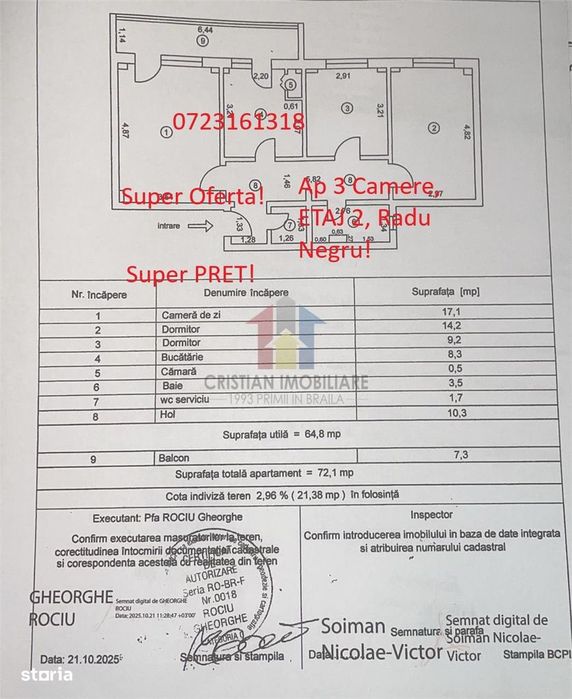 6,44
1,14
9
2,20
5
2,91
0,61
3,21
4,87
1
0723161318
3
2
4,82
8
1,46
5,82
8
Super Oferta!
Ap 3 Camere,
2,97
ETAJ 2, Radu
Negru!
intrare
1,33
7
1,28
1,26
0,60
0,63
1,53
Super PRET!
Nr. încăpere Denumire încăpere Suprafața [mp]
1 Cameră de zi 17,1
2 Dormitor 14,2
3 Dormitor 9,2
4 Bucătărie 8,3
5 Cămară 0,5
6 Baie 3,5
7 wc serviciu 1,7
8 Hol 10,3
CRISTIAN IMOBILIARE
1993 PRIMII IN BRAILA
Suprafața utilă = 64,8 mp
9 Balcon 7,3
Suprafața totală apartament = 72,1 mp
Cota indiviză teren 2,96 % ( 21,38 mp) în folosință
Executant: Pfa ROCIU Gheorghe
Confirm executarea masuratorilor la teren,
corectitudinea întocmirii documentației cadastrale
si corespondenta acesteia cu realitatea din teren
Inspector
Confirm introducerea imobilului in baza de date integrata
si atribuirea numarului cadastral
CERTIFICAT
DE
AUTORIZARE
Seria RO-BR-F
Nr.0018
ROCIU
GHEORGHE
CATEGORIA
GHEORGHE
ROCIU
Semnat digital de GHEORGHE
ROCIU
Data: 2025.10.21 11:28:47 +03'00'
Data: 21.10.2025
Semnatura si stampila
Soiman
Nicolae-Victor
Semnatura si parafa
Data
Semnat digital de
Soiman Nicolae-
Victor
Stampila BCPI
storia